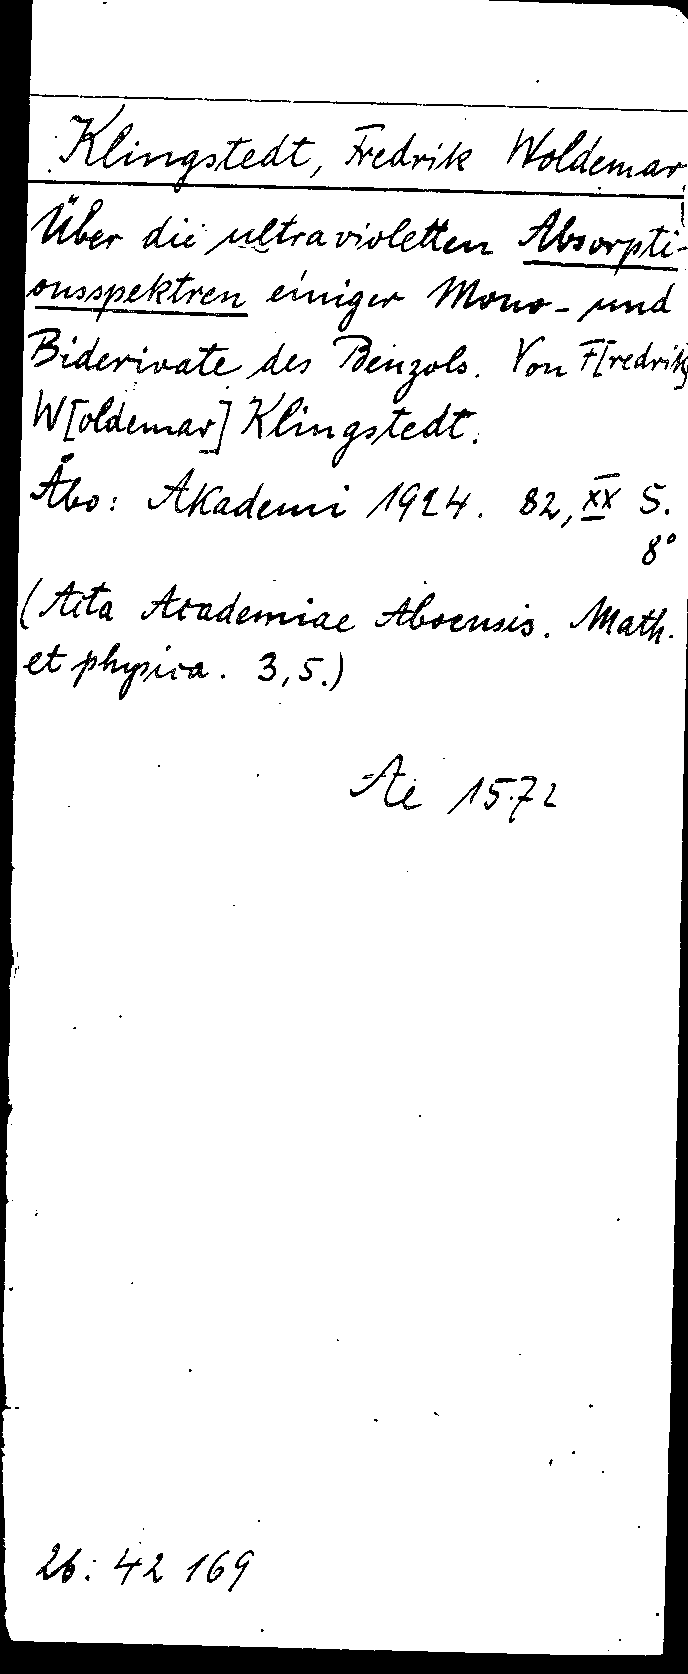 Klingstedt, Fredrik Woldemar
Über die ultravioletten Absorpti-
onsspektren einiger Mono- und
Biderivate des Benzols. Von F[redrik]
W[oldemar] Klingstedt.
Åbo: Akademi 1924. 82, XX S.
8°
(Acta Academiae Aboensis. Math.
et physica. 3,5.)
Ae 1572
26: 42 169